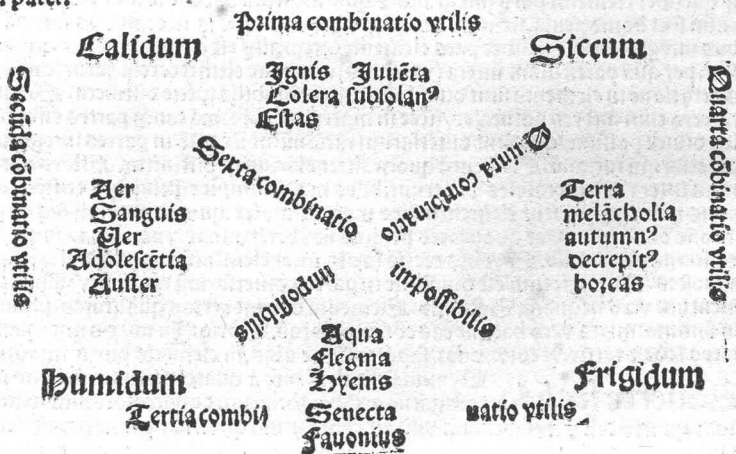 Prima combinatio vtilis
Calidum
Siccum
Ignis Iuuẽta
Colera subsolanꝰ
Estas
Secũda cõbinatio vtilis
Quarta cõbinatio vtilis
Sexta combinatio
Quinta combinatio
Aer
Sanguis
Uer
Adolescẽtia
Auster
Terra
melãcholia
autumnꝰ
decrepitꝰ
boreas
impossibilis
impossibilis
Aqua
Flegma
Hyems
Senecta
Fauonius
Humidum
Frigidum
Tertia combi
natio vtilis